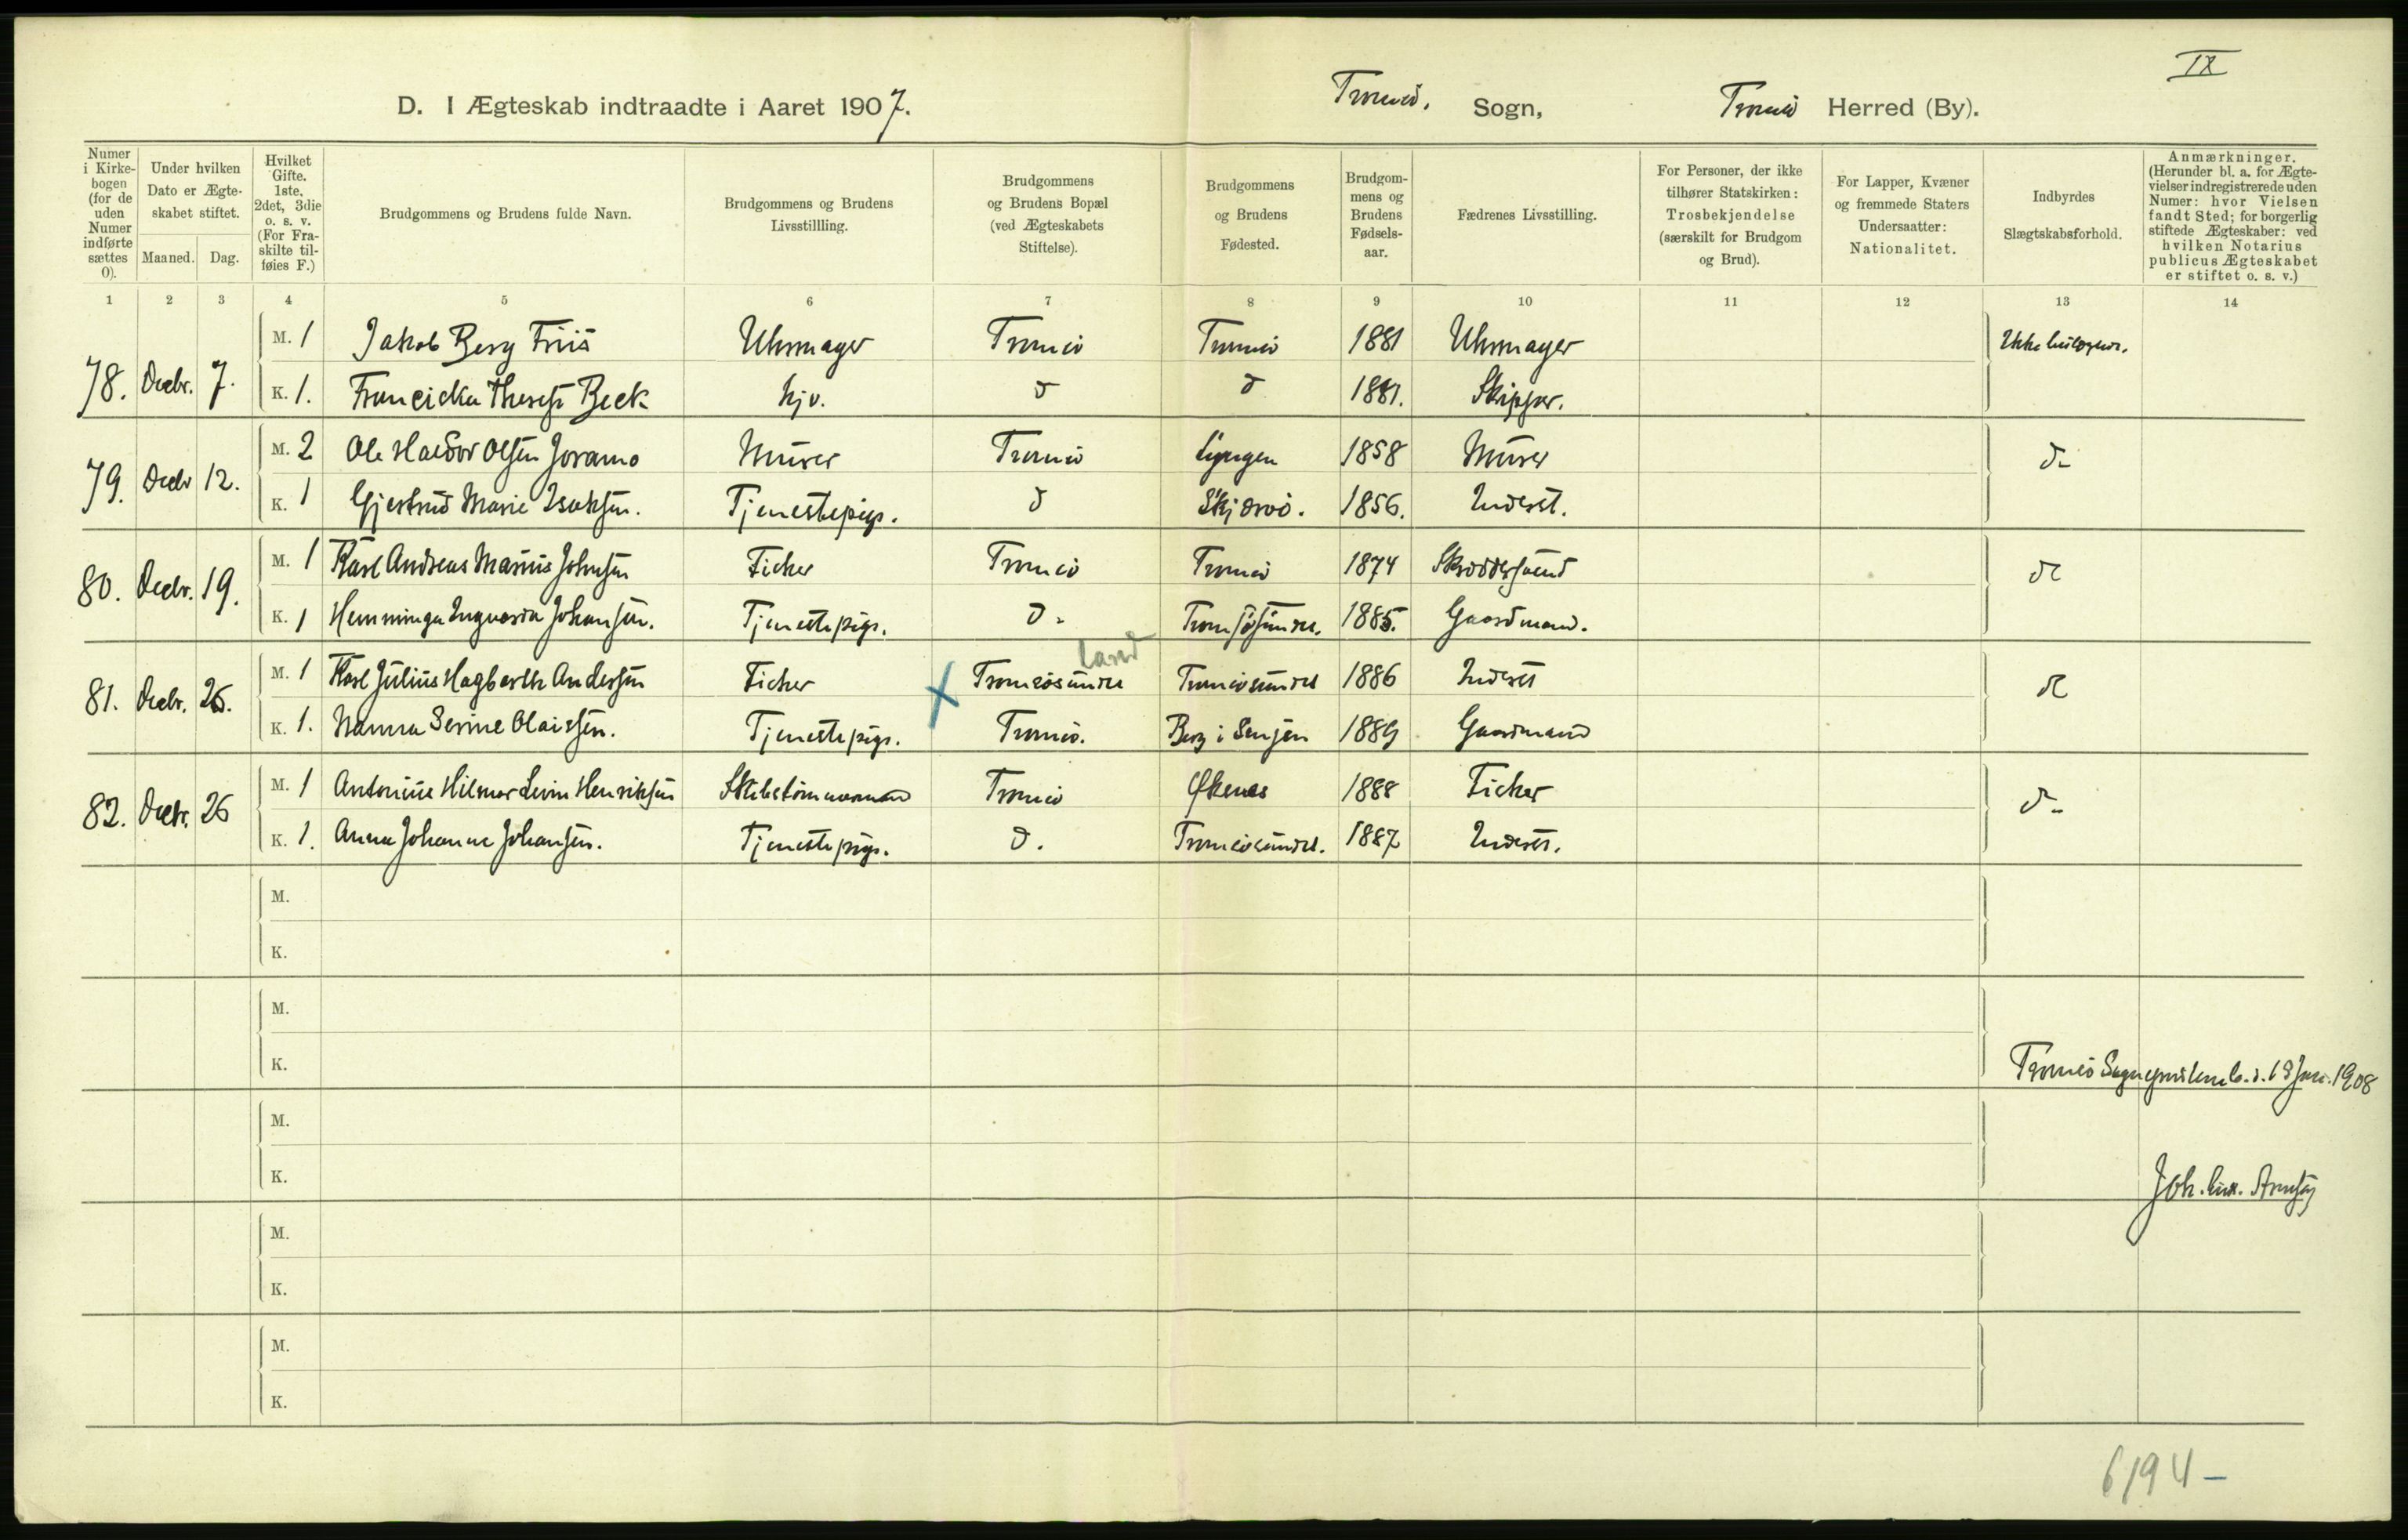 IX
D. I Ægteskab indtraadte i Aaret 1907. Tromsö. Sogn, Tromsö Herred (By).
Numer i Kirke-bogen (for de uden Numer indførte sættes 0).
Under hvilken Dato er Ægte-skabet stiftet.
Maaned. Dag.
Hvilket Gifte. 1ste, 2det, 3die o. s. v. (For Fra-skilte til-føies F.)
Brudgommens og Brudens fulde Navn.
Brudgommens og Brudens Livsstillling.
Brudgommens og Brudens Bopæl (ved Ægteskabets Stiftelse).
Brudgommens og Brudens Fødested.
Brudgom-mens og Brudens Fødsels-aar.
Fædrenes Livsstilling.
For Personer, der ikke tilhører Statskirken: Trosbekjendelse (særskilt for Brudgom og Brud).
For Lapper, Kvæner og fremmede Staters Undersaatter: Nationalitet.
Indbyrdes Slægtskabsforhold.
Anmærkninger. (Herunder bl. a. for Ægte-vielser indregistrerede uden Numer: hvor Vielsen fandt Sted; for borgerlig stiftede Ægteskaber: ved hvilken Notarius publicus Ægteskabet er stiftet o. s. v.)
1 2 3 4 5 6 7 8 9 10 11 12 13 14
78. Decbr. 7. M. 1 Jakob Berg Friis Uhrmager Tromsö Tromsö 1881 Uhrmager Ikke beslægtede.
K. 1. Francicka Therese Beck hjv. d d 1881. Skipper.
79. Decbr 12. M. 2 Ole Haldor Olsen Joramo Murer Tromsö Lyngen 1858 Murer d-
K. 1 Gjertrud Marie Isaksen. Tjenestepige. d Skjærvö. 1856. Inderst.
80. Decbr. 19. M. 1 Karl Andreas Marius Johnsen Ficher Tromsö Tromsö 1874 Skræddersvend do
K. 1 Hemminga Ingvarda Johansen. Tjenestepige. d. Tromsösundet. 1885. Gaardmand.
land
81. Decbr. 26. M. 1 Karl Julius Hagbarth Andersen Ficher X Tromsösundet Tromsösundet 1886 Inderst do
K. 1. Hanna Serine Olaissen. Tjenestepige. Tromsö. Berg i Senjen 1889 Gaardmand
82. Decbr. 26 M. 1 Antonius Hilmar Levin Henriksen Skibstømmermand Tromsö Øksnes 1888 Ficher d-
K. 1. Anna Johanne Johansen. Tjenestepige. d. Tromsösundet. 1887 Inderst.
M.
K.
M.
K. Tromsö Sogneprestemb. d. 13 Jan. 1908
M.
K. Joh.
M.
K.
M.
K.
6194-